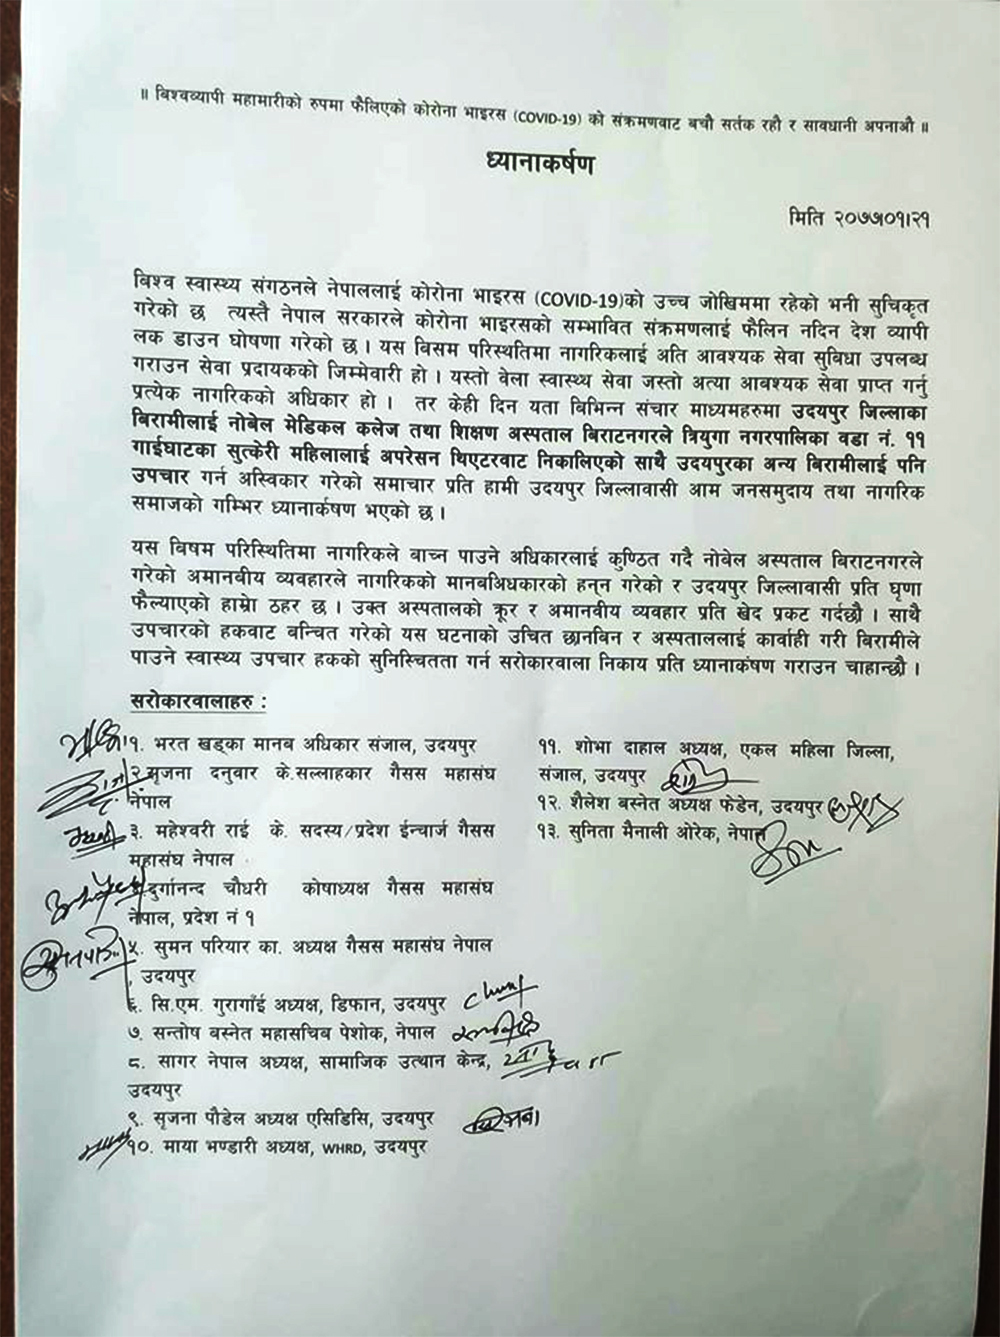 ॥ बिश्वव्यापी महामारीको रुपमा फैलिएको कोरोना भाइरस (COVID-19) को संक्रमणवाट बचौ सर्तक रहौ र सावधानी अपनाऔ ॥
ध्यानाकर्षण
मिति २०७७।०१।२१
बिश्व स्वास्थ्य संगठनले नेपाललाई कोरोना भाइरस (COVID-19)को उच्च जोखिममा रहेको भनी सुचिकृत
गरेको छ त्यस्तै नेपाल सरकारले कोरोना भाइरसको सम्भावित संक्रमणलाई फैलिन नदिन देश व्यापी
लक डाउन घोषणा गरेको छ । यस बिसम परिस्थितिमा नागरिकलाई अति आवश्यक सेवा सुबिधा उपलब्ध
गराउन सेवा प्रदायकको जिम्मेवारी हो । यस्तो वेला स्वास्थ्य सेवा जस्तो अत्या आबश्यक सेवा प्राप्त गर्नु
प्रत्येक नागरिकको अधिकार हो । तर केही दिन यता बिभिन्न संचार माध्यमहरुमा उदयपुर जिल्लाका
बिरामीलाई नोबेल मेडिकल कलेज तथा शिक्षण अस्पताल बिराटनगरले त्रियुगा नगरपालिका वडा नं. ११
गाईघाटका सुत्केरी महिलालाई अपरेसन थिएटरवाट निकालिएको साथै उदयपुरका अन्य बिरामीलाई पनि
उपचार गर्न अस्विकार गरेको समाचार प्रति हामी उदयपुर जिल्लावासी आम जनसमुदाय तथा नागरिक
समाजको गम्भिर ध्यानार्कषण भएको छ ।
यस बिषम परिस्थितिमा नागरिकले बाच्न पाउने अधिकारलाई कुण्ठित गदै नोबेल अस्पताल बिराटनगरले
गरेको अमानवीय व्यवहारले नागरिकको मानबअिधकारको हनन गरेको र उदयपुर जिल्लावासी प्रति घृणा
फैल्याएको हाम्रो ठहर छ । उक्त अस्पतालको क्रूर र अमानवीय व्यवहार प्रति खेद प्रकट गर्दछौ । साथै
उपचारको हकवाट बन्चित गरेको यस घटनाको उचित छानबिन र अस्पताललाई कार्वाही गरी बिरामीले
पाउने स्वास्थ्य उपचार हकको सुनिस्चितता गर्न सरोकारवाला निकाय प्रति ध्यानाकंषण गराउन चाहान्छौ ।
सरोकारवालाहरु :
१. भरत खड्का मानब अधिकार संजाल, उदयपुर
२. सृजना दनुवार के.सल्लाहकार गैसस महासंघ
नेपाल
३. महेश्वरी राई के. सदस्य/प्रदेश ईन्चार्ज गैसस
महासंघ नेपाल
दुर्गानन्द चौधरी कोषाध्यक्ष गैसस महासंघ
नेपाल, प्रदेश नं १
५. सुमन परियार का. अध्यक्ष गैसस महासंघ नेपाल
, उदयपुर
६. सि.एम. गुरागाँई अध्यक्ष, डिफान, उदयपुर
७. सन्तोष बस्नेत महासचिब पेशोक, नेपाल
८. सागर नेपाल अध्यक्ष, सामाजिक उत्थान केन्द्र,
उदयपुर
९. सृजना पौडेल अध्यक्ष एसिडिसि, उदयपुर
१०. माया भण्डारी अध्यक्ष, WHRD, उदयपुर
११. शोभा दाहाल अध्यक्ष, एकल महिला जिल्ला,
संजाल, उदयपुर
१२. शैलेश बस्नेत अध्यक्ष फेडेन, उदयपुर
१३. सुनिता मैनाली ओरेक, नेपाल